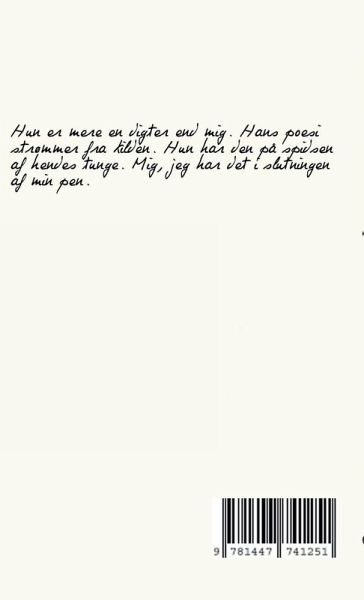 Hun er mere en digter end mig. Hans poesi
strømmer fra kilden. Hun har den på spidsen
af hendes tunge. Mig, jeg har det i slutningen
af min pen.
9 781447 741251